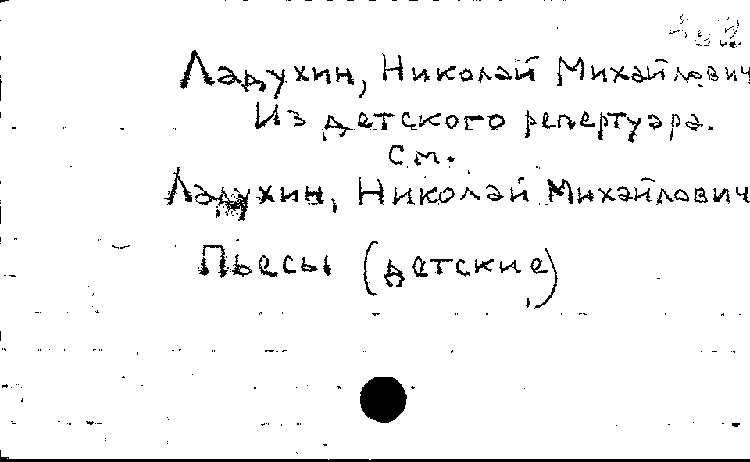 Ладухин, Николай Михайлович
Из детского репертуара.
см.
Ладухин, Николай Михайлович
Пьесы (детские)